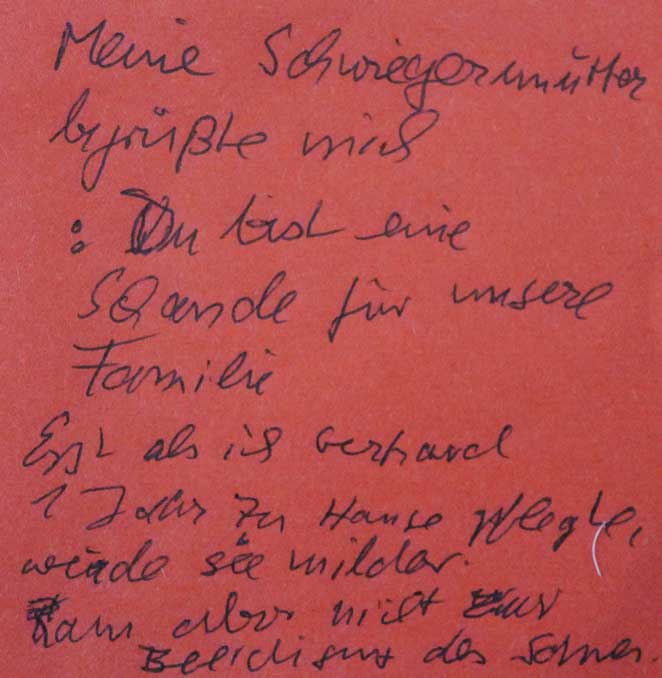 Meine Schwiegermutter
begrüßte mich
: Du bist eine
Schande für unsere
Familie
Erst als ich Gerhard
1 Jahr zu Hause pflegte,
wurde sie milder.
Kam aber nicht zur
Beerdigung des Sohnes.